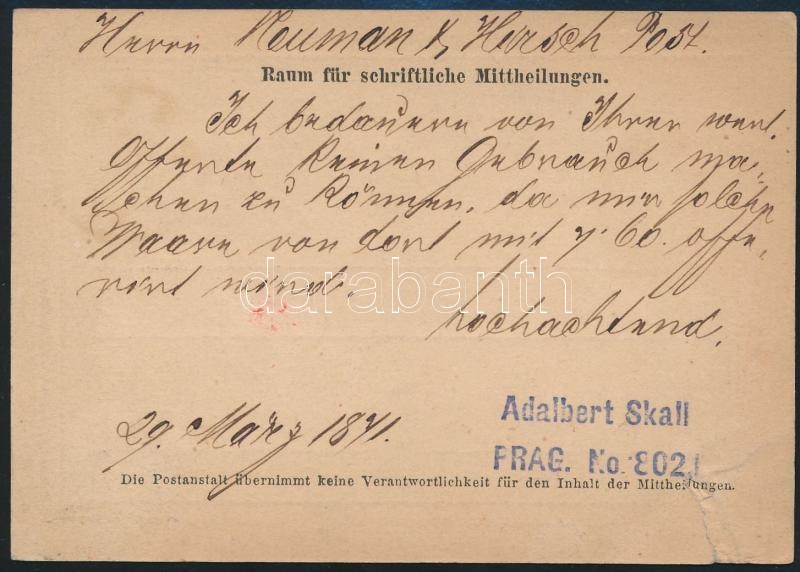 Herrn Neuman & Hirsch Post.
Raum für schriftliche Mittheilungen.
Ich bedauere von Ihrer wert.
Offerte keinen Gebrauch ma-
chen zu können, da mir solche
Waare von dort mit 7.60. offe-
rirt wird.
hochachtend.
darabanth
29. März 1871.
Adalbert Skall
PRAG. No. 802/
Die Postanstalt übernimmt keine Verantwortlichkeit für den Inhalt der Mittheilungen.